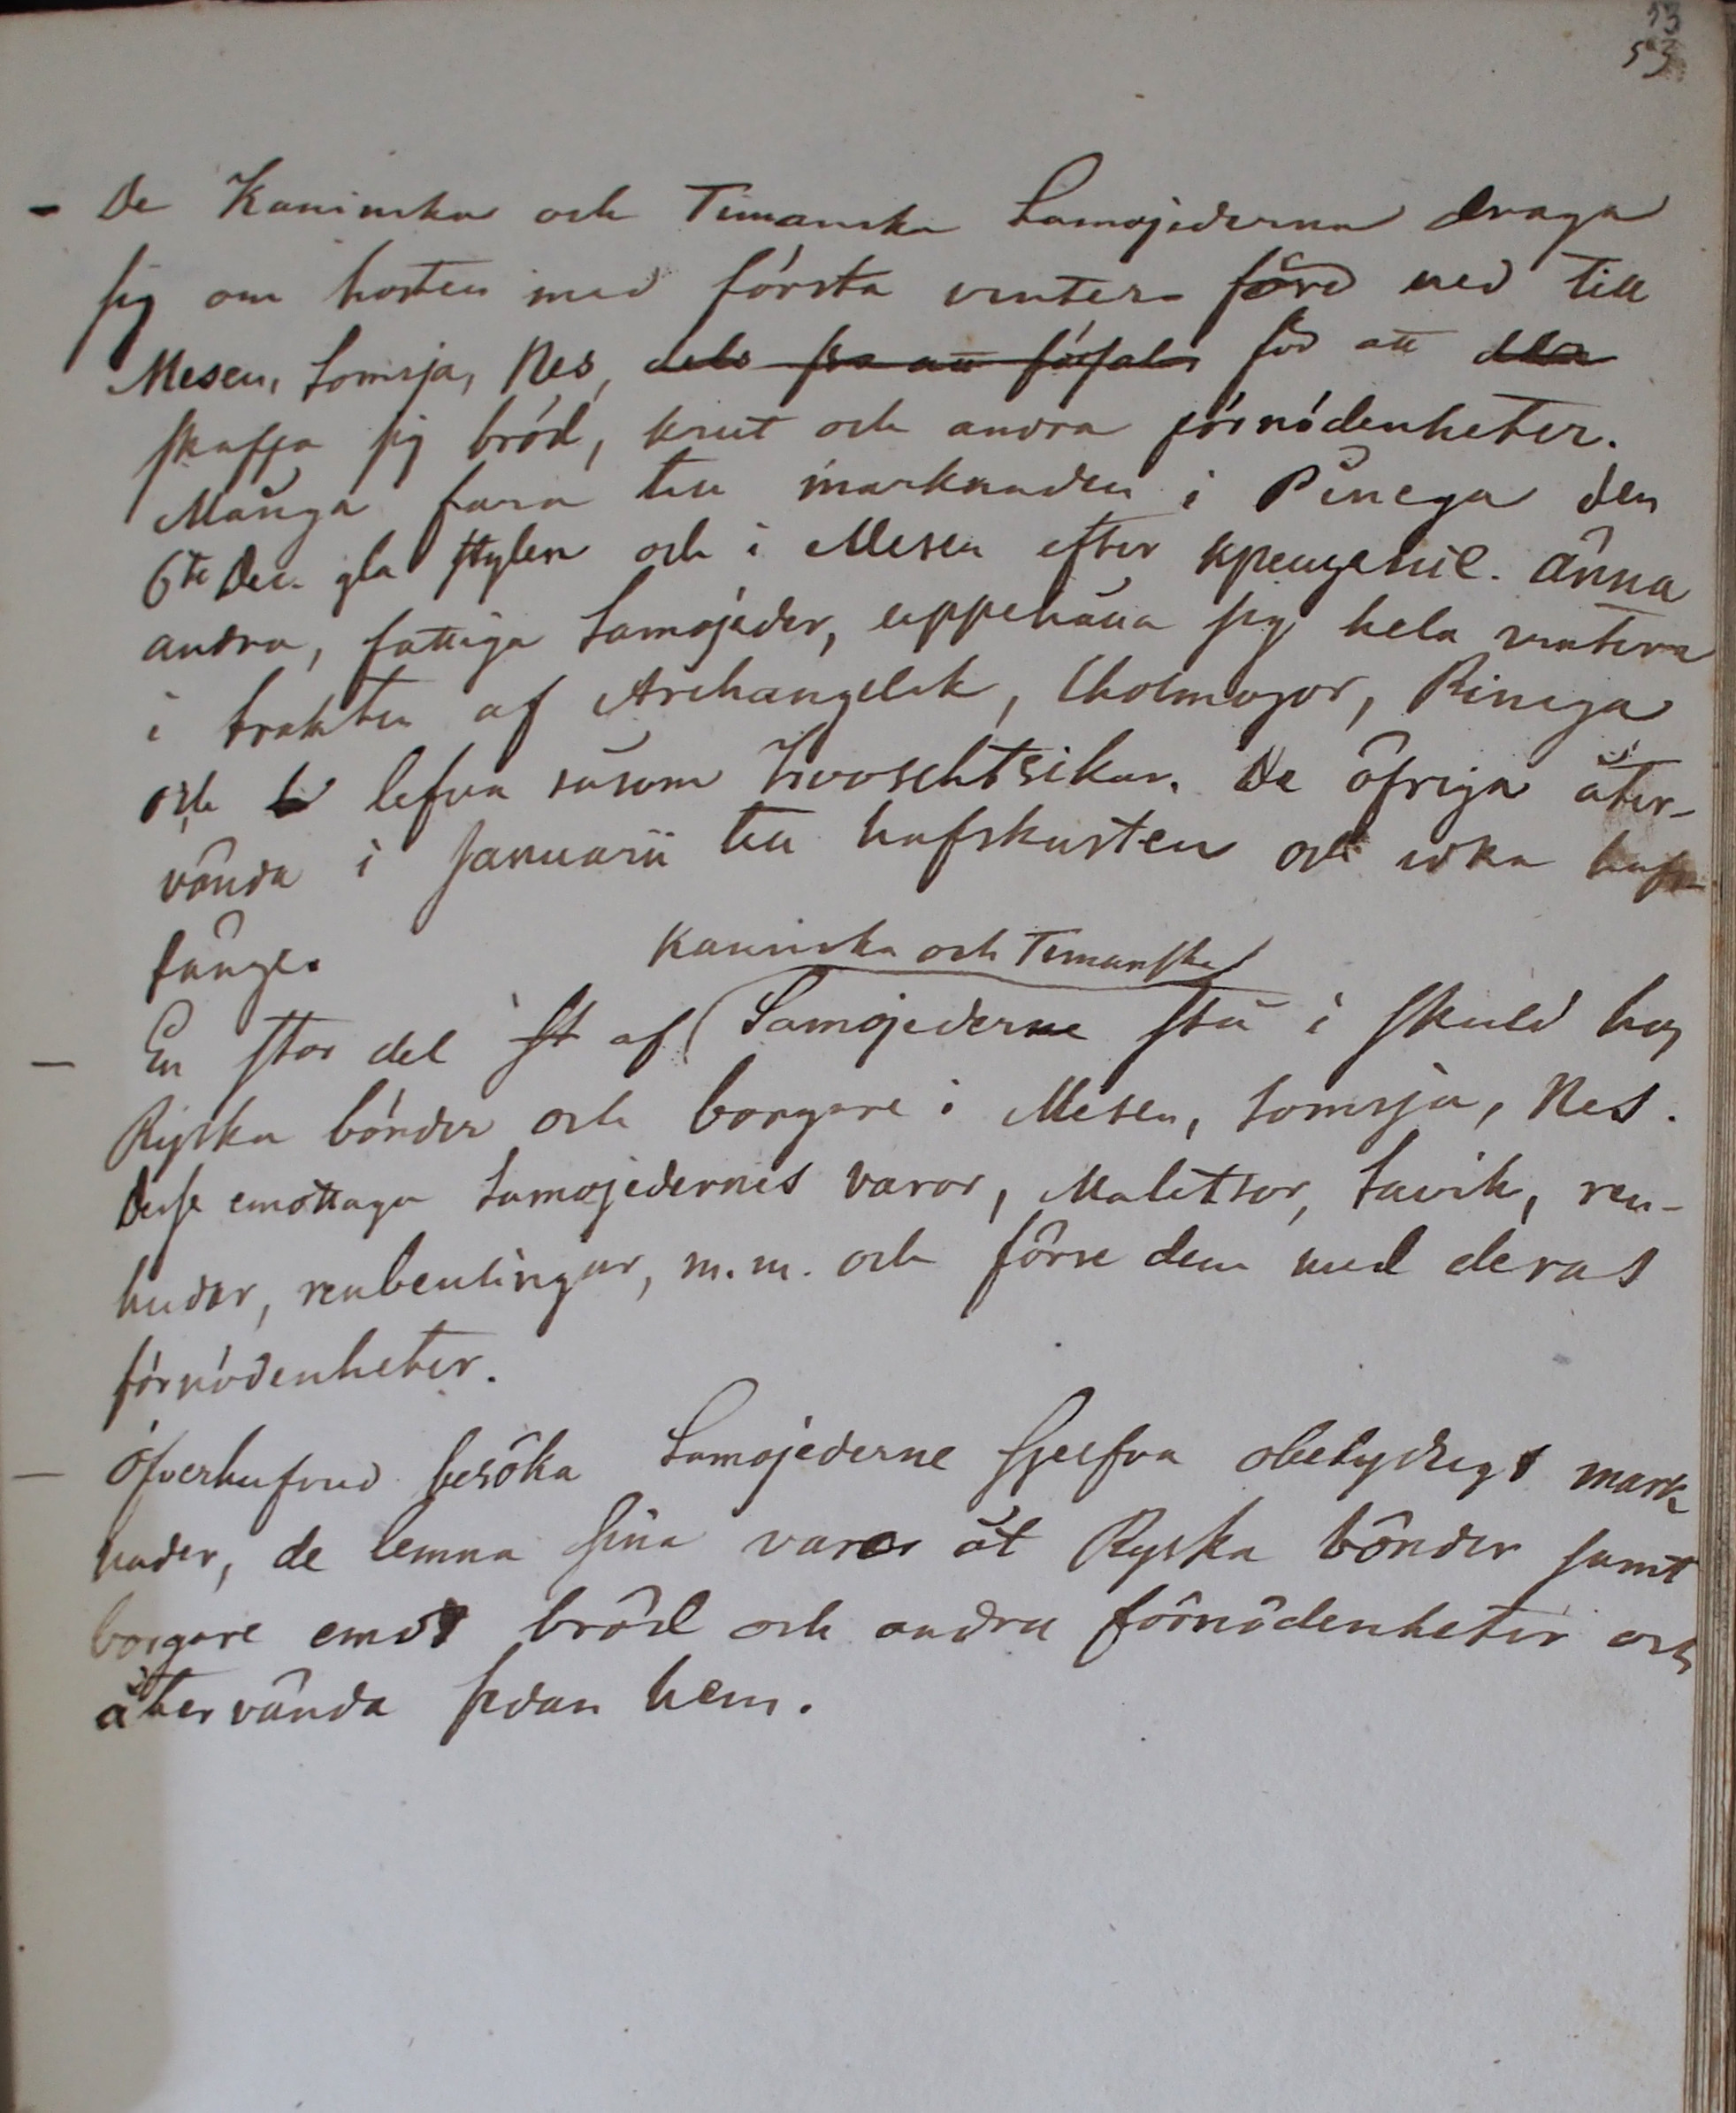 53
53
- De Kaninska och Timanska Samojederna draga
sig om hösten med första vinter före ned till
Mesen, Somsja, Nes, dels för att för att
skaffa sig bröd, krut och andra förnödenheter.
Många fara till marknaden i Pinega den
6te Dec. gla stylen och i Mesen efter крещеніе. Ännu
andra, fattiga Samojeder, uppehålla sig hela vintern
i trakten af Archangelsk, Cholmogor, Pinega
och lefva såsom
De öfriga åter-
vända i Januarii till hafskusten och idka hafs-
fånge.
Kaninska och Timanska
- En stor del st af (Samojederne stå i skuld hos
Ryska bönder och borgare i Mesen, Somsja, Nes.
Desse emottaga Samojedernes varor, Malitsor, Savik, ren-
hudar, renbenlingar, m.m. och förse dem med deras
förnödenheter.
- Öfverhufvud besöka Samojederne sjelfva obetydligt mark
nader, de lemna sina varor åt Ryska bönder samt
borgare emot bröd och andra förnödenheter och
återvända sedan hem.